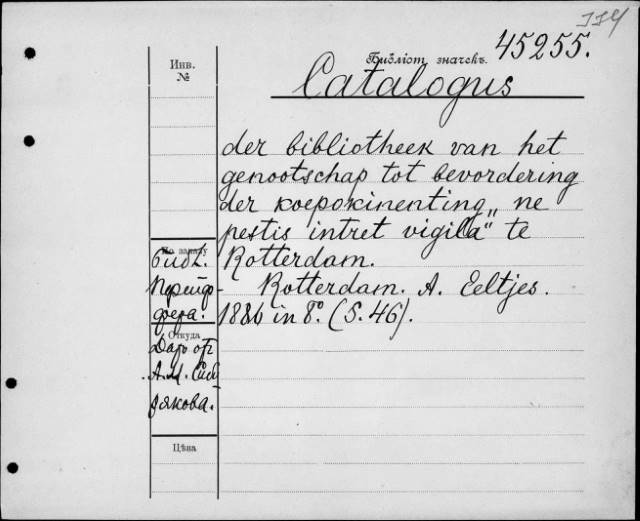 774
Библіот. значекъ.
45255.
Инв.
№
Catalogus
der bibliotheek van het
genootschap tot bevordering
der koepokinenting „ne
pestis intret vigila“ te
Rotterdam.
Rotterdam. A. Eeltjes.
in 8°. (S. 46).
По заказу
Библ.
Перейд-
фера.
Откуда
Даръ от
А. М. Сиби
рякова.
Цѣна